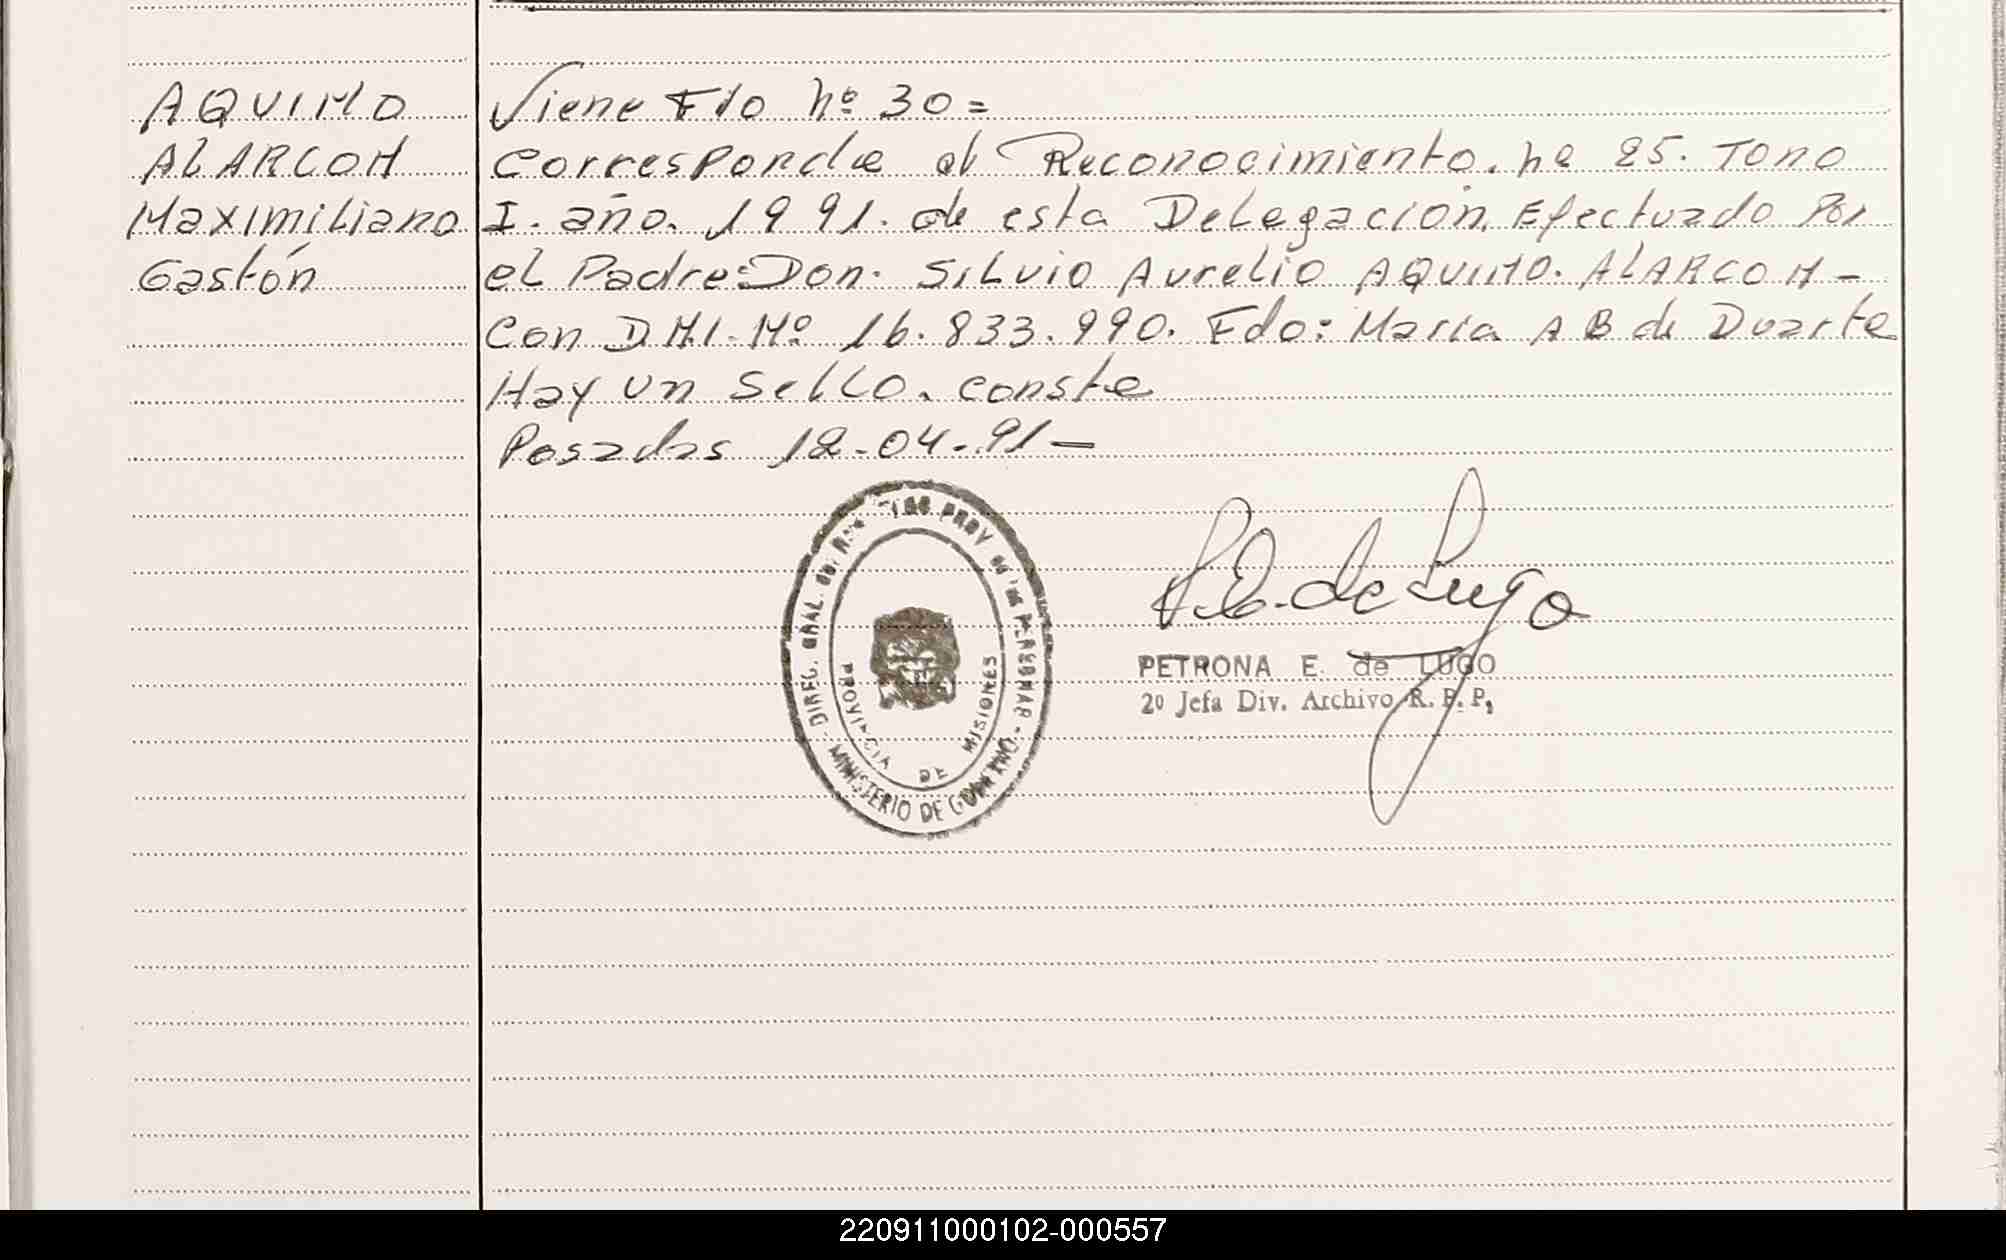 AQUINO
ALARCON
Maximiliano
Gastón
Viene Flo nº 30=
Corresponde al Reconocimiento. nº 25. Tono
I. año. 1991. de esta Delegación. Efectuado Por
el Padre: Don. Silvio Aurelio AQUINO. ALARCON-
Con D.N.I. Nº 16.833.990. Fdo: María A B de Duarte
Hay un Sello. conste
Posadas 12-04-91-
P. E. de Lugo
PETRONA E. de LUGO
2º Jefa Div. Archivo R. P. P.
DIREC. GRAL. del PROV de las PERSONAS - MINISTERIO DE GOBIERNO -
PROVINCIA DE MISIONES
220911000102-000557